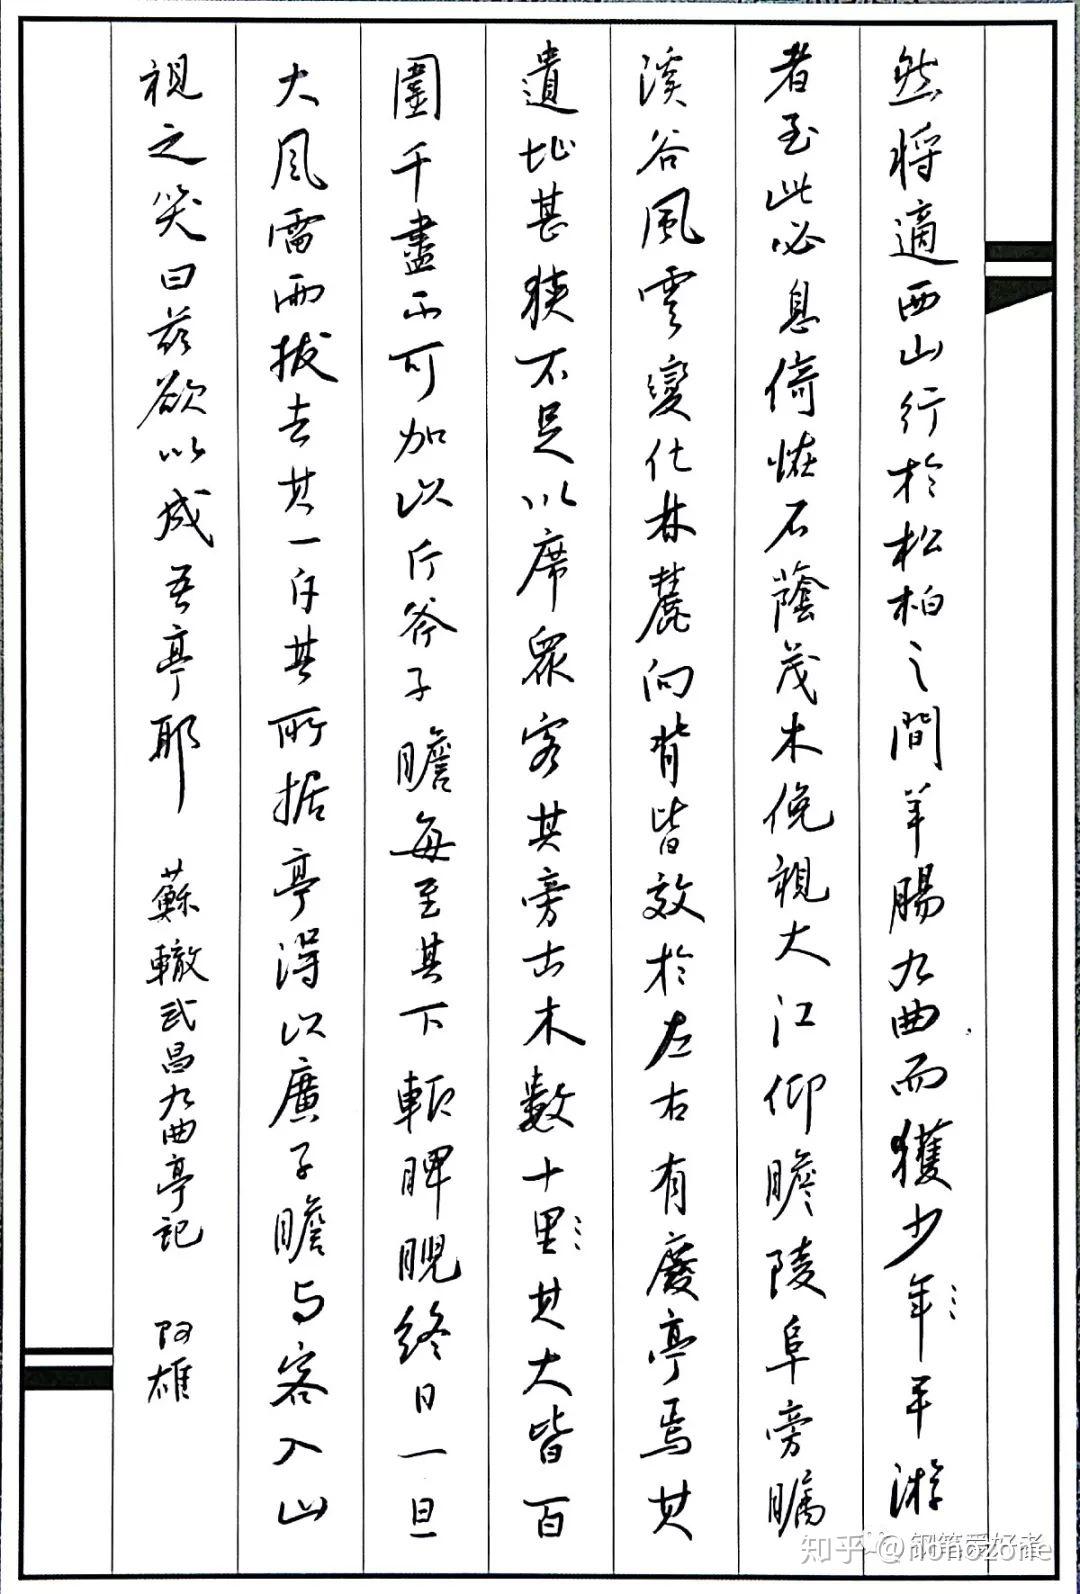 然將適西山行於松柏之間羊腸九曲而獲少年平游
者至此必息倚怪石蔭茂木俛視大江仰瞻陵阜旁矚
溪谷風雲變化林麓向背皆效於左右有廢亭焉其
遺址甚狹不足以席眾客其旁古木數十里其大皆百
圍千盡不可加以斤斧子瞻每至其下輒睥睨終日一旦
大風雷雨拔去其一斥其所据亭得以廣子瞻与客入山
視之笑曰茲欲以成吾亭耶 蘇轍武昌九曲亭記 阿雄
知乎 @nonozone
钢笔爱好者